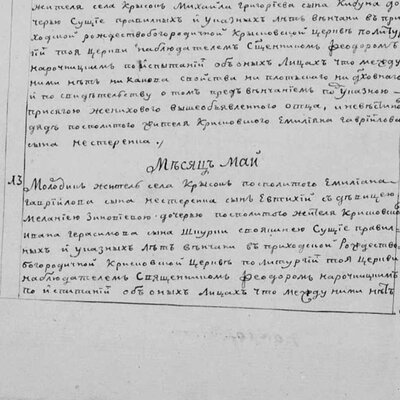 жителя села Крысокъ Михаила Григориева сына
черью Сущие правилныхъ и Указныхъ лѣтъ вѣнчани въ при
ходной рождествобогородичной Крисовской Церквѣ по литур
гїй тоя Церкви наблюдателемъ Священникомъ Феодоромъ
нарочицимъ по испитанїй обѣ оныхъ Лицахъ что между
ними нѣтъ ни какова свойства ни плотскаго ни духовнаго
и по свидѣтельству о томъ предъ вѣнчанием по Указную
присягою женихового вышеобъявленного отца, и невѣстино
дядѣ посполитого жителя Крисовского Емилияна Гаврїилова
сына нестеренка
Мѣсяцъ Май
13 Молодикъ житель села Крысокъ посполитого Емилиана
гаврїилова сына нестеренка сынъ Евтихїй съ дѣвицею
Меланиею Зиновїевою дочерью посполитого жителя Крисовско
Ивана герасимова сына Шпурки Сущие правил
ныхъ и указныхъ лѣтъ вѣнчани въ приходской Рождество
богородичной Крисовской Церквѣ по литургїй тоя Церкви
наблюдателемъ Священникомъ Феодоромъ нарочицимъ
по испитанїй обѣ оныхъ Лицахъ что между ними нѣтъ